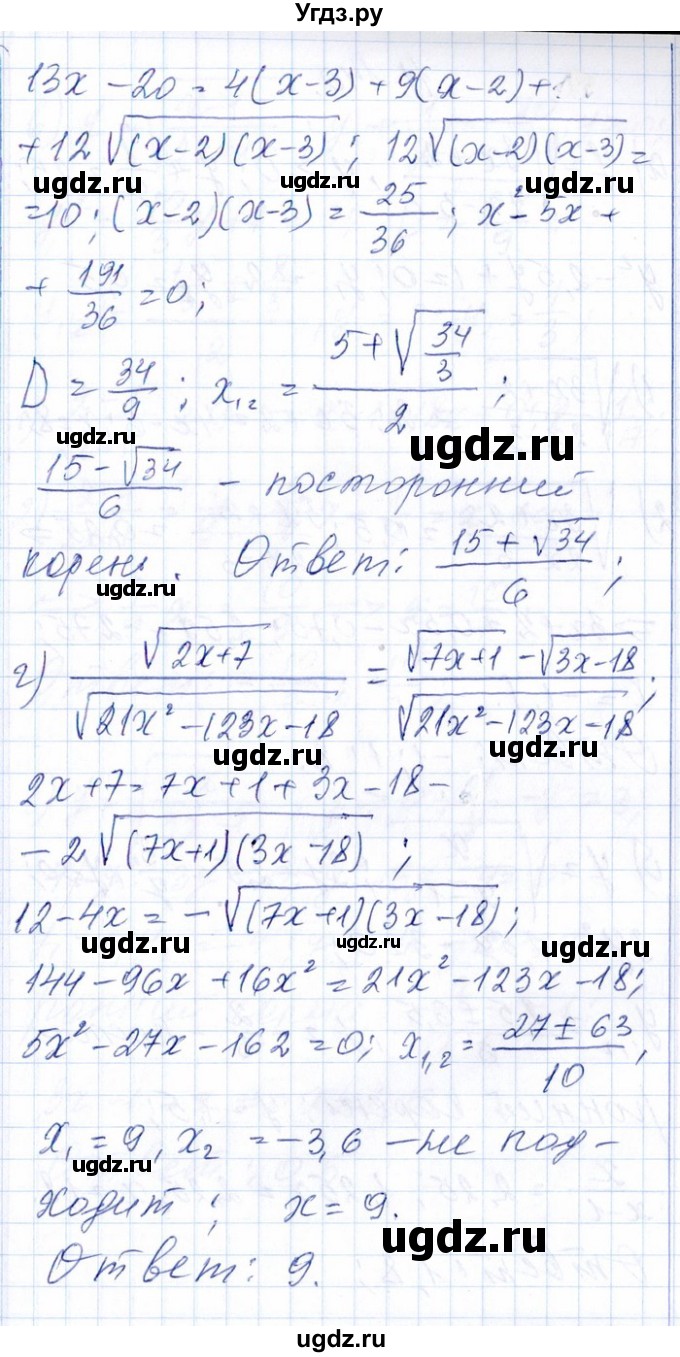 Угдз.ру
13x - 20 = 4(x-3) + 9(x-2) +
+ 12√((x-2)(x-3)); 12√((x-2)(x-3)) =
ugdz.ru ugdz.ru ugdz.ru
= 10; (x-2)(x-3) = 25/36; x² - 5x +
+ 191/36 = 0;
D = 34/9; x₁₂ = (5 + √(34/3))/2;
ugdz.ru ugdz.ru
(15 - √34)/6 - посторонний
корень. Ответ: (15 + √34)/6;
ugdz.ru
г) √(2x+7)/√(21x² - 123x - 18) = (√(7x+1) - √(3x-18))/√(21x² - 123x - 18);
ugdz.ru ugdz.ru
2x + 7 = 7x + 1 + 3x - 18 -
- 2√((7x+1)(3x-18));
12 - 4x = -√((7x+1)(3x-18));
ugdz.ru ugdz.ru ugdz.ru
144 - 96x + 16x² = 21x² - 123x - 18;
5x² - 27x - 162 = 0; x₁,₂ = (27 ± 63)/10;
x₁ = 9, x₂ = -3,6 - не под-
ugdz.ru
ходит; x = 9.
Ответ: 9.
ugdz.ru